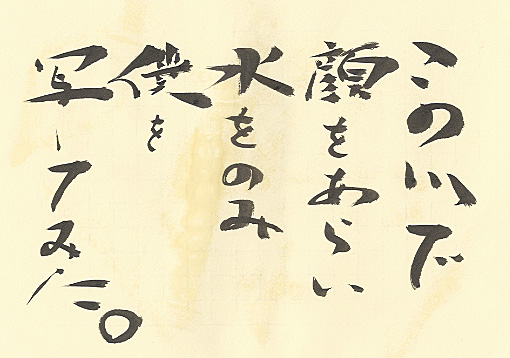 この川で
顔をあらい
水をのみ
僕を
写してみた。